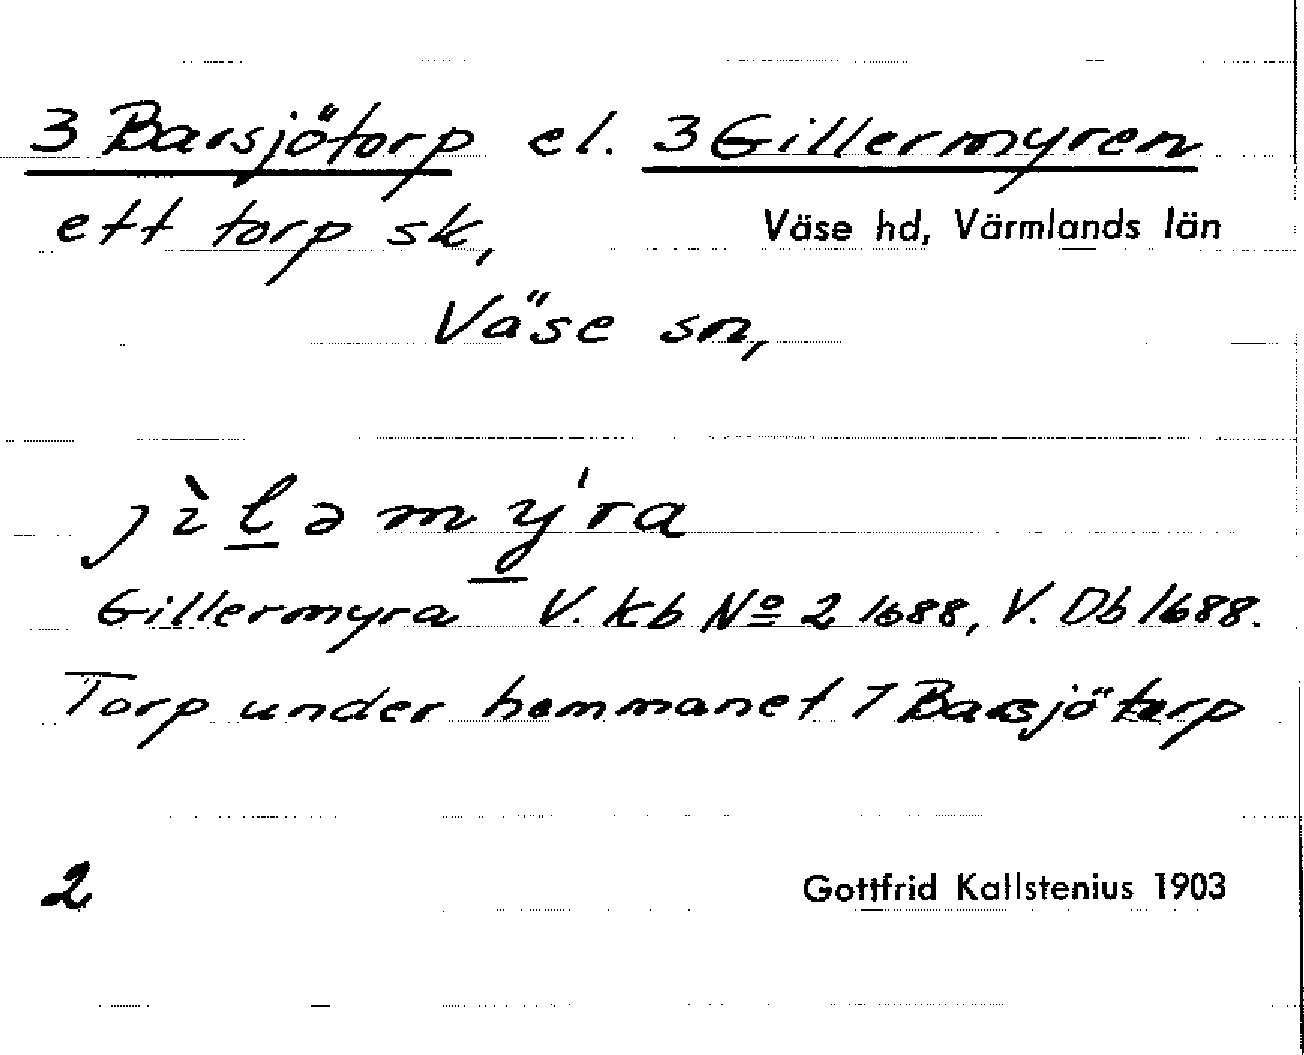 3 Barsjötorp el. 3 Gillermyren
ett torp sk, Väse hd, Värmlands län
Väse sn,
jìləmy̍ra
Gillermyra V. kb Nº 2 1688, V. Db 1688.
Torp under hemmanet 7 Barsjötorp
2 Gottfrid Kallstenius 1903